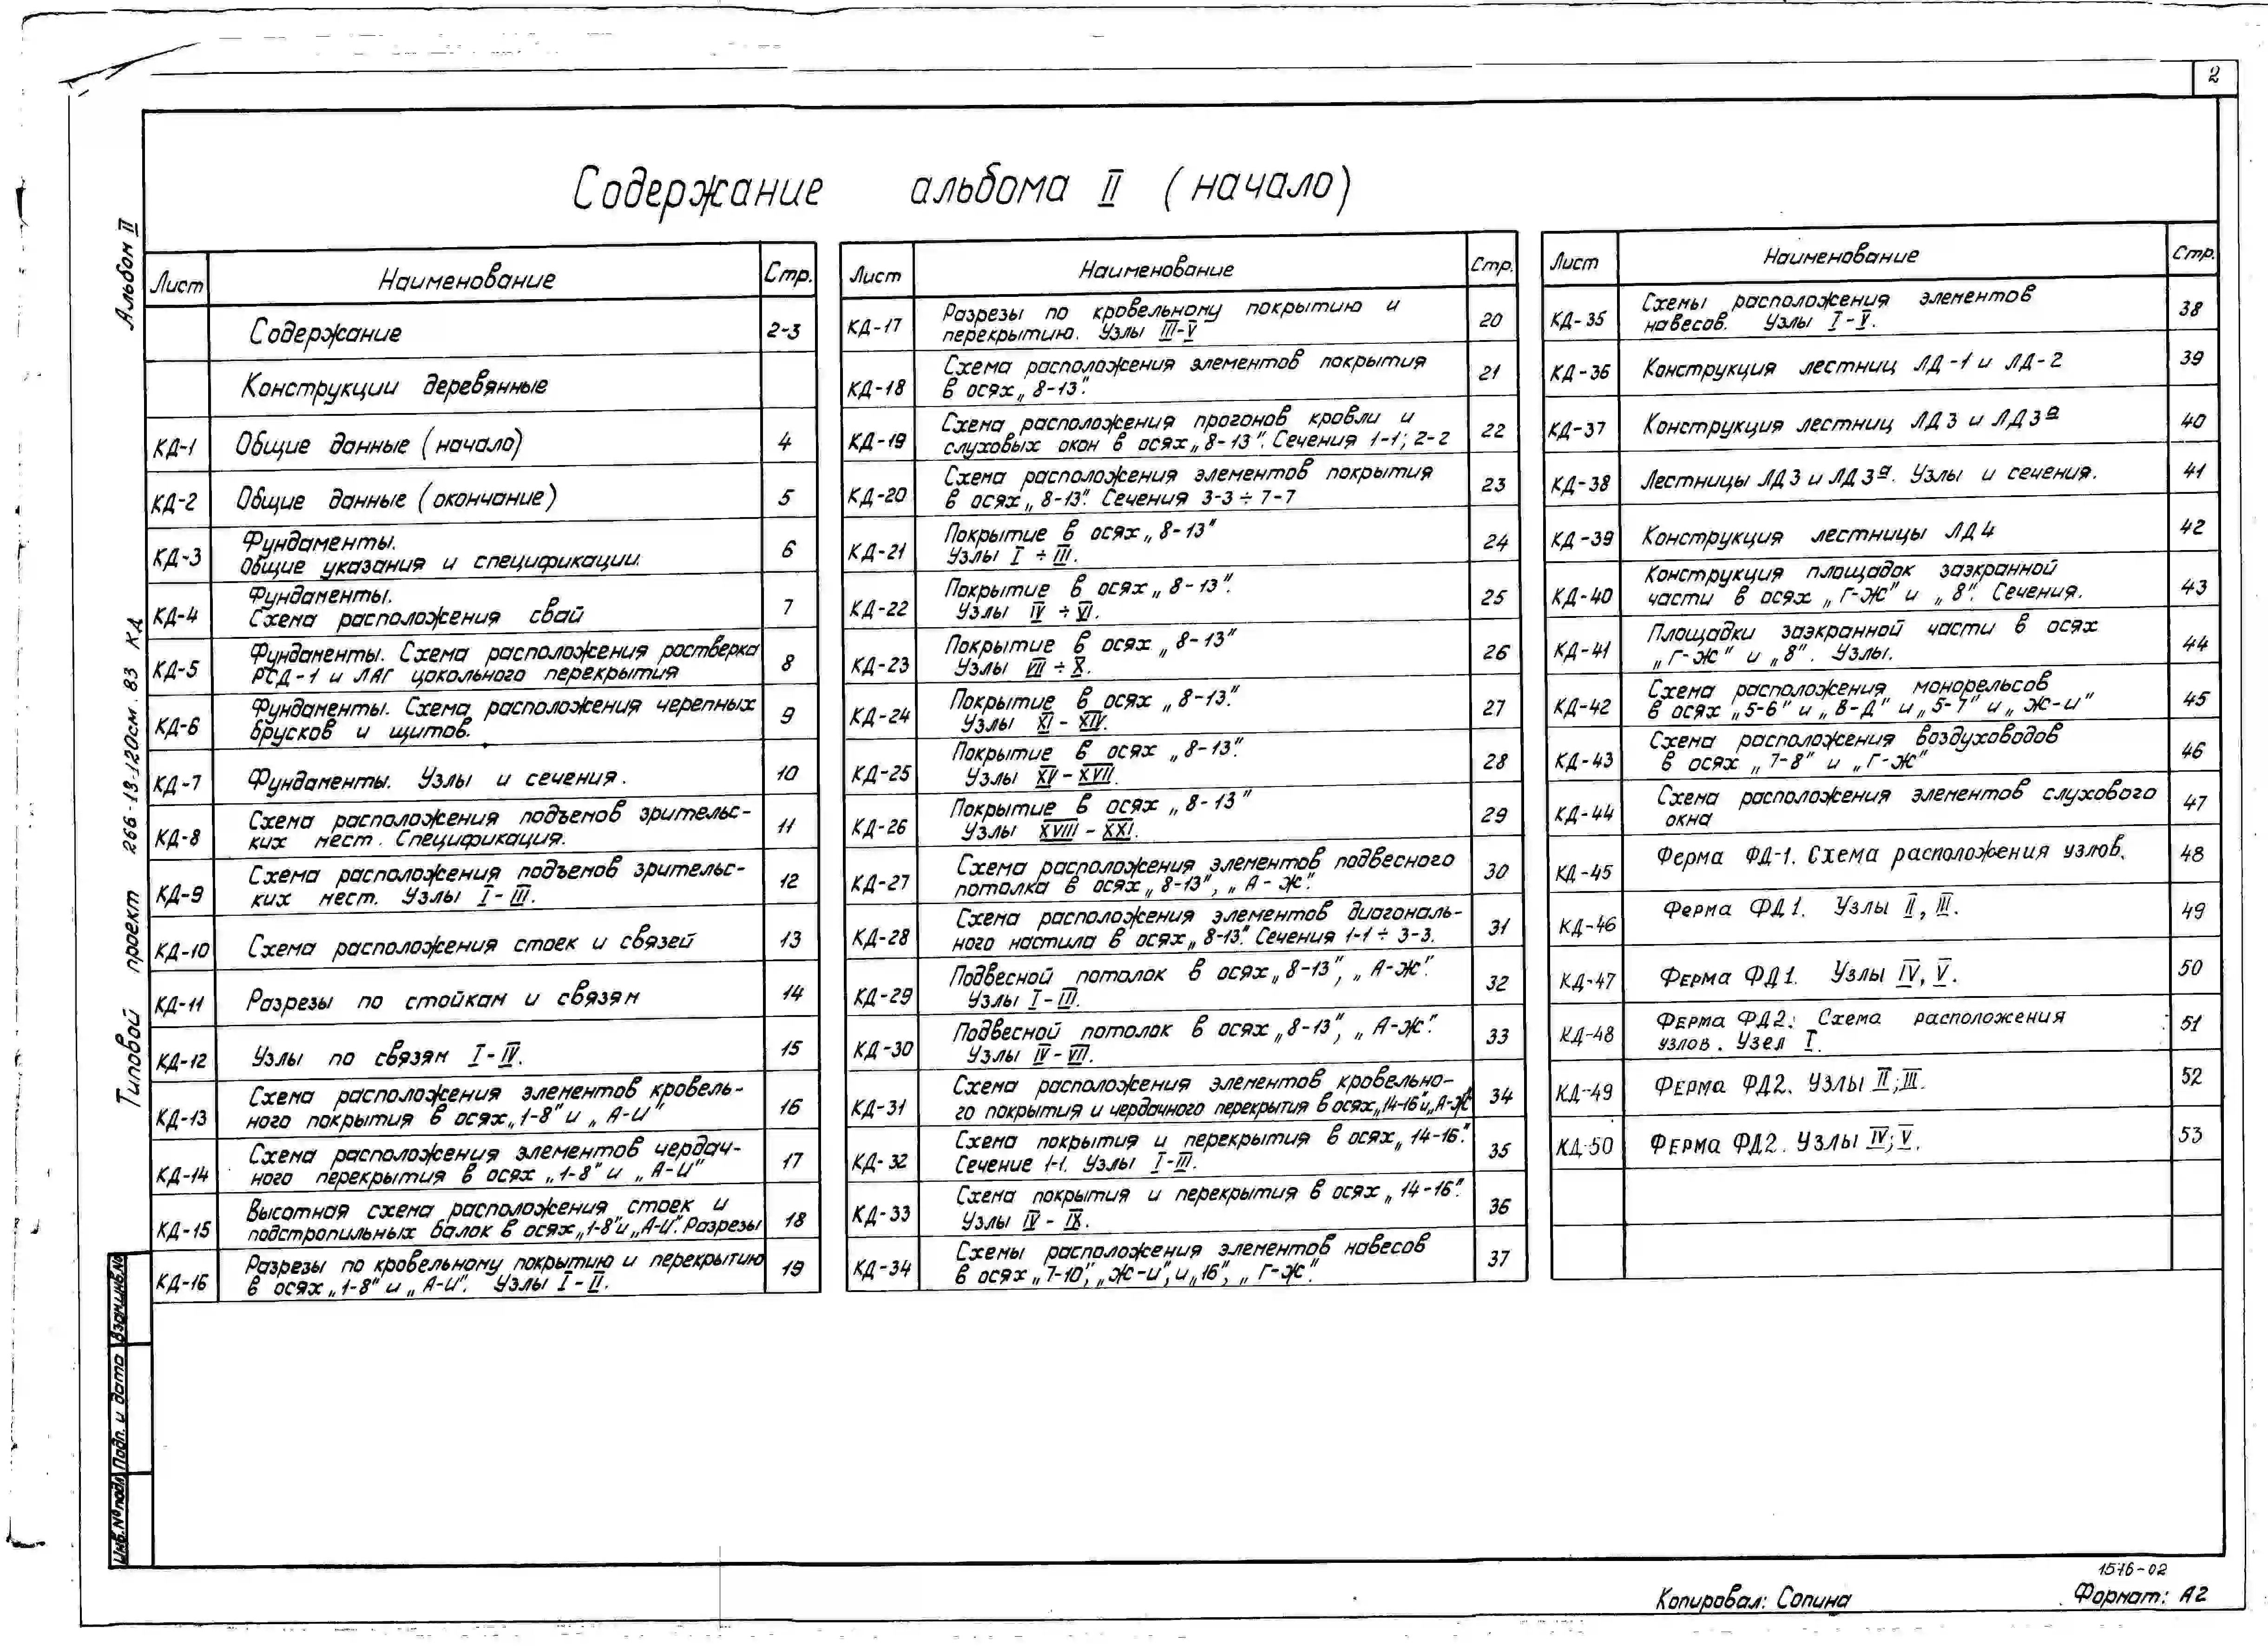 2
Содержание альбома II (начало)
Альбом II
Типовой проект 266-13-120см.83 КД
Взам.инв.№
Подп. и дата
Инв.№ подл.
Лист Наименование Стр.
Содержание 2-3
Конструкции деревянные
КД-1 Общие данные (начало) 4
КД-2 Общие данные (окончание) 5
КД-3 Фундаменты.
Общие указания и спецификации. 6
КД-4 Фундаменты.
Схема расположения свай 7
КД-5 Фундаменты. Схема расположения ростверка
РСД-1 и ЛАГ цокольного перекрытия 8
КД-6 Фундаменты. Схема расположения черепных
брусков и щитов. 9
КД-7 Фундаменты. Узлы и сечения. 10
КД-8 Схема расположения подъемов зрительс-
ких мест. Спецификация. 11
КД-9 Схема расположения подъемов зрительс-
ких мест. Узлы I-III. 12
КД-10 Схема расположения стоек и связей 13
КД-11 Разрезы по стойкам и связям 14
КД-12 Узлы по связям I-IV. 15
КД-13 Схема расположения элементов кровель-
ного покрытия в осях „1-8" и „А-И" 16
КД-14 Схема расположения элементов чердач-
ного перекрытия в осях „1-8" и „А-И" 17
КД-15 Высотная схема расположения стоек и
подстропильных балок в осях „1-8" и „А-И". Разрезы 18
КД-16 Разрезы по кровельному покрытию и перекрытию
в осях „1-8" и „А-И". Узлы I-II. 19
Лист Наименование Стр.
КД-17 Разрезы по кровельному покрытию и
перекрытию. Узлы III-V 20
КД-18 Схема расположения элементов покрытия
в осях „8-13". 21
КД-19 Схема расположения прогонов кровли и
слуховых окон в осях „8-13". Сечения 1-1; 2-2 22
КД-20 Схема расположения элементов покрытия
в осях „8-13". Сечения 3-3÷7-7 23
КД-21 Покрытие в осях „8-13"
Узлы I÷III. 24
КД-22 Покрытие в осях „8-13".
Узлы IV÷VI. 25
КД-23 Покрытие в осях „8-13"
Узлы VII÷X. 26
КД-24 Покрытие в осях „8-13".
Узлы XI-XIV. 27
КД-25 Покрытие в осях „8-13".
Узлы XV-XVII. 28
КД-26 Покрытие в осях „8-13"
Узлы XVIII-XXI. 29
КД-27 Схема расположения элементов подвесного
потолка в осях „8-13", „А-Ж". 30
КД-28 Схема расположения элементов диагональ-
ного настила в осях „8-13". Сечения 1-1÷3-3. 31
КД-29 Подвесной потолок в осях „8-13", „А-Ж".
Узлы I-III. 32
КД-30 Подвесной потолок в осях „8-13", „А-Ж".
Узлы IV-VII. 33
КД-31 Схема расположения элементов кровельно-
го покрытия и чердачного перекрытия в осях „14-16" и „А-Ж" 34
КД-32 Схема покрытия и перекрытия в осях „14-16".
Сечение 1-1. Узлы I-III. 35
КД-33 Схема покрытия и перекрытия в осях „14-16".
Узлы IV-IX. 36
КД-34 Схемы расположения элементов навесов
в осях „7-10", „Ж-И", и „16", „Г-Ж". 37
Лист Наименование Стр.
КД-35 Схемы расположения элементов
навесов. Узлы I-V. 38
КД-36 Конструкция лестниц ЛД-1 и ЛД-2 39
КД-37 Конструкция лестниц ЛД3 и ЛД3а 40
КД-38 Лестницы ЛД3 и ЛД3а. Узлы и сечения. 41
КД-39 Конструкция лестницы ЛД4 42
КД-40 Конструкция площадок заэкранной
части в осях „Г-Ж" и „8". Сечения. 43
КД-41 Площадки заэкранной части в осях
„Г-Ж" и „8". Узлы. 44
КД-42 Схема расположения монорельсов
в осях „5-6" и „В-Д" и „5-7" и „Ж-И" 45
КД-43 Схема расположения воздуховодов
в осях „7-8" и „Г-Ж" 46
КД-44 Схема расположения элементов слухового
окна 47
КД-45 Ферма ФД-1. Схема расположения узлов. 48
КД-46 Ферма ФД1. Узлы II, III. 49
КД-47 Ферма ФД1. Узлы IV, V. 50
КД-48 Ферма ФД2. Схема расположения
узлов. Узел I. 51
КД-49 Ферма ФД2. Узлы II; III. 52
КД-50 Ферма ФД2. Узлы IV; V. 53
1576-02
Копировал: Сопина Формат: А2